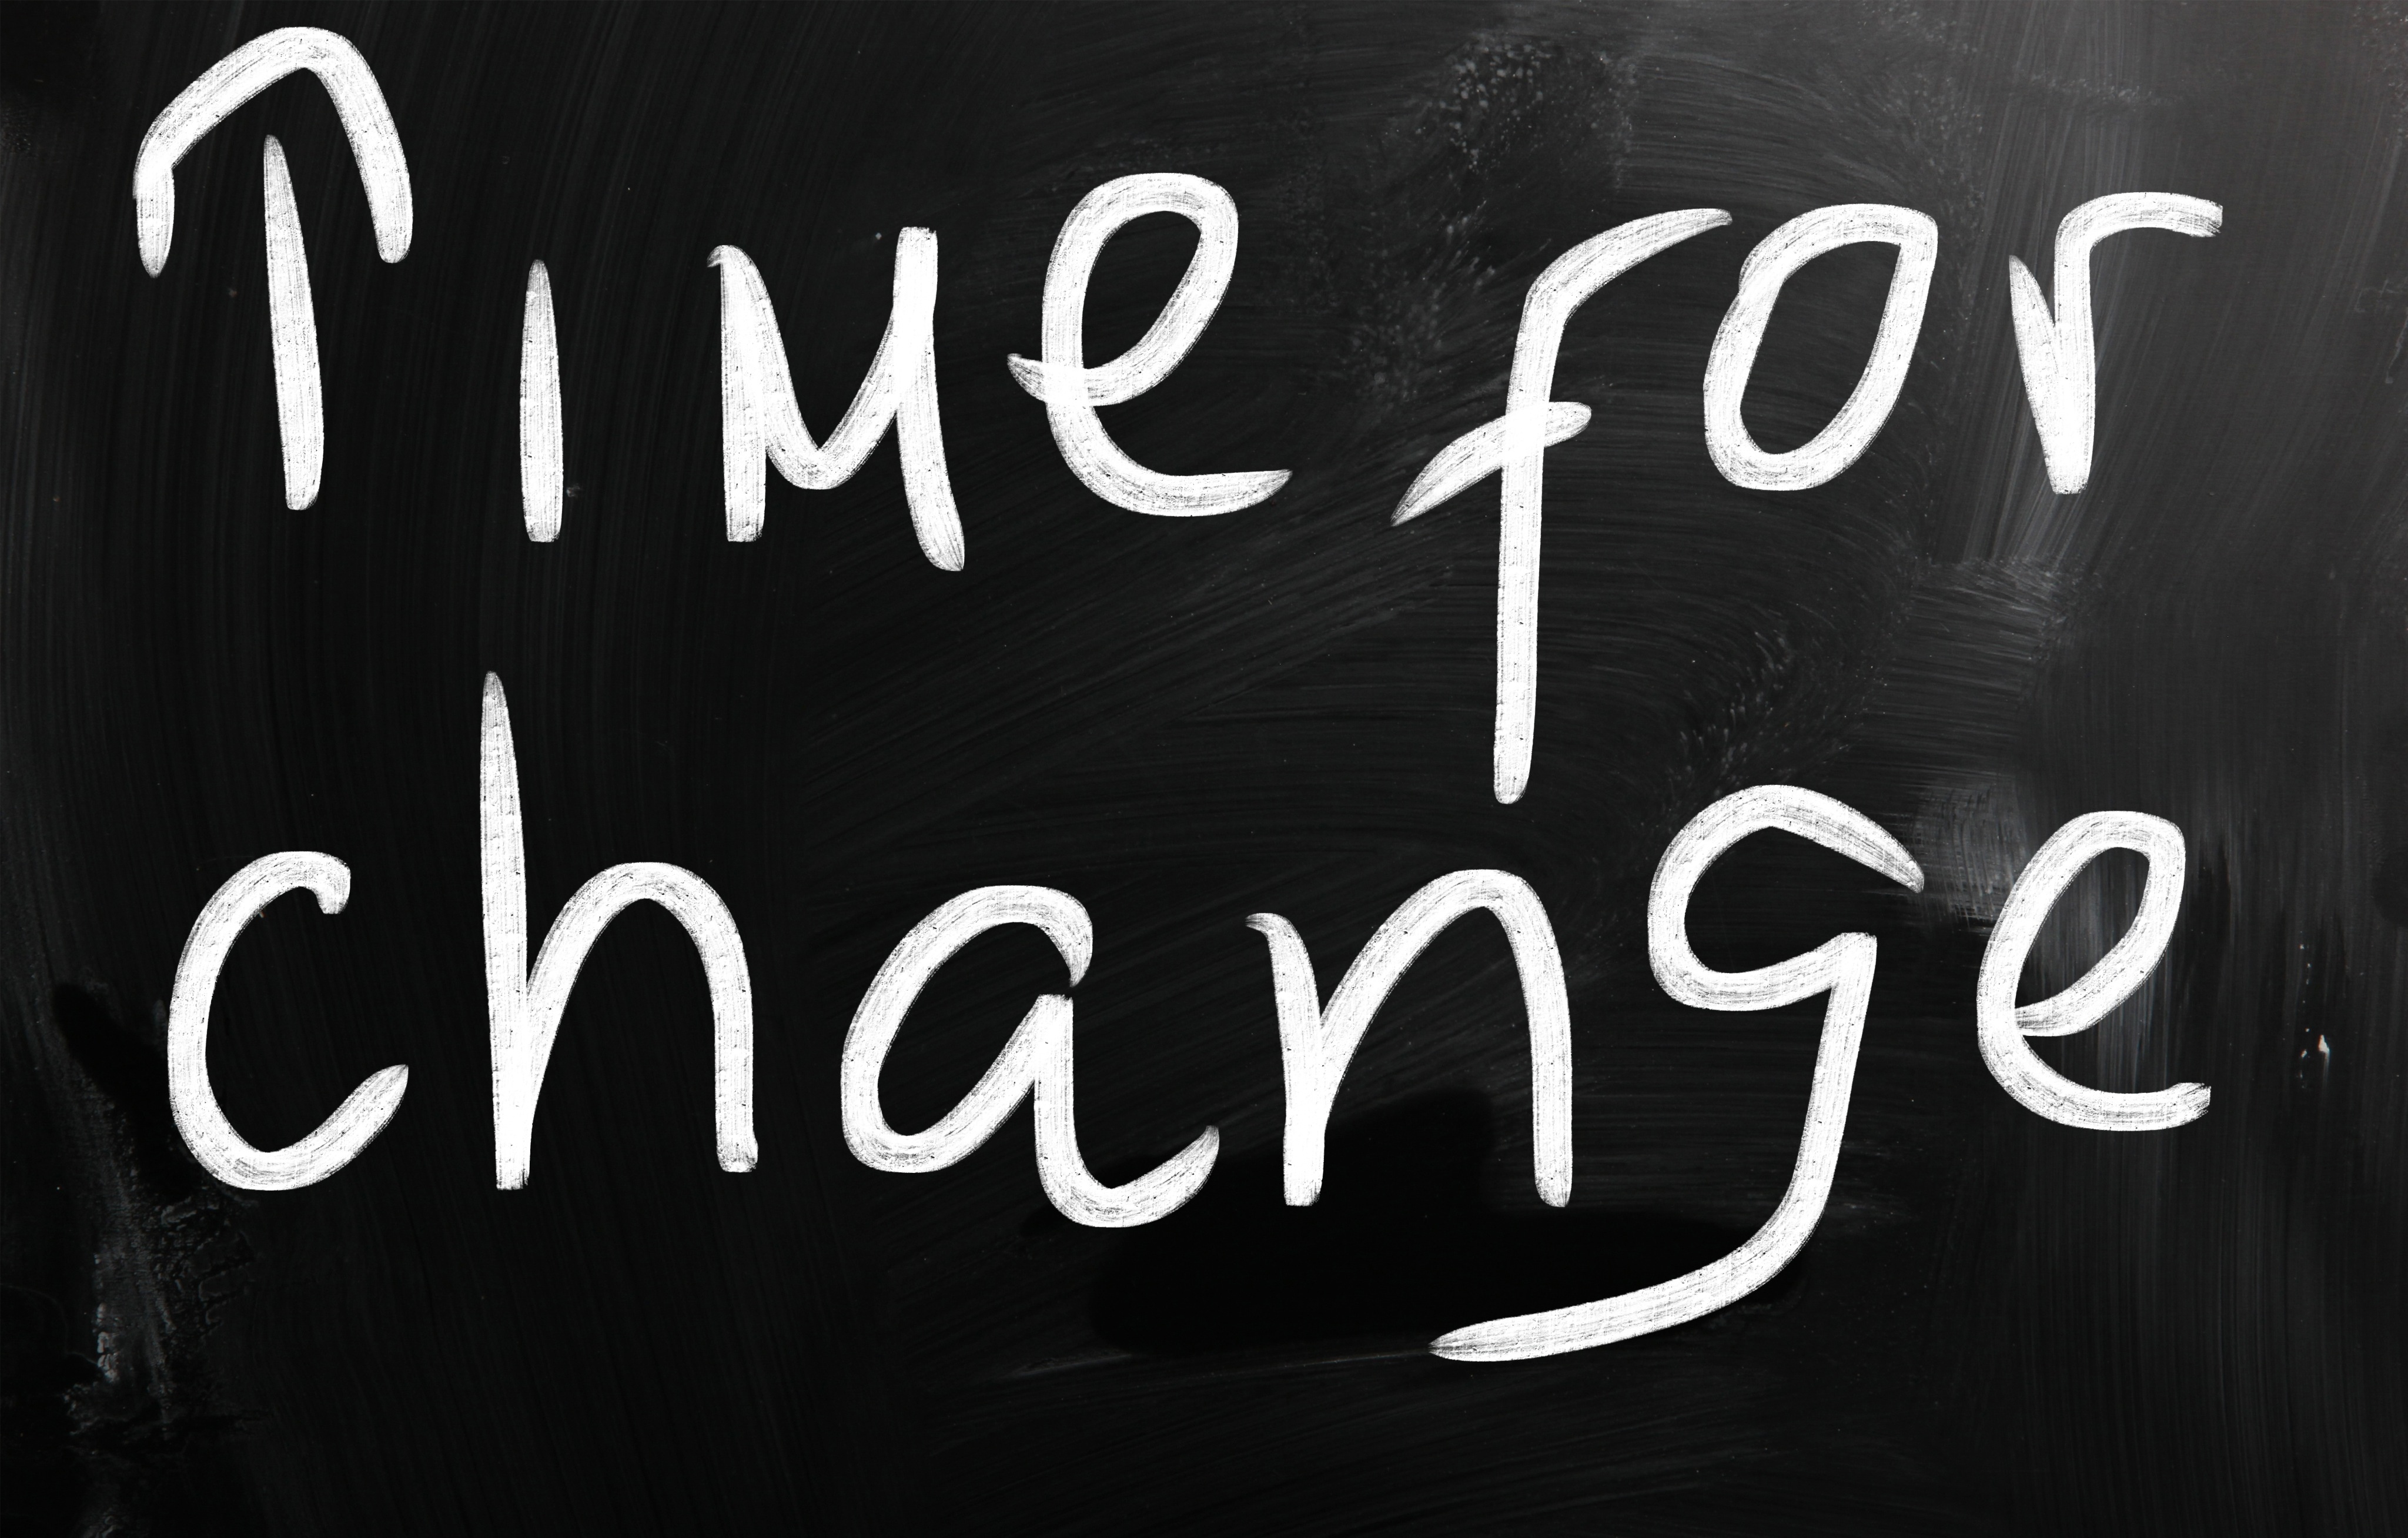 Time for
change